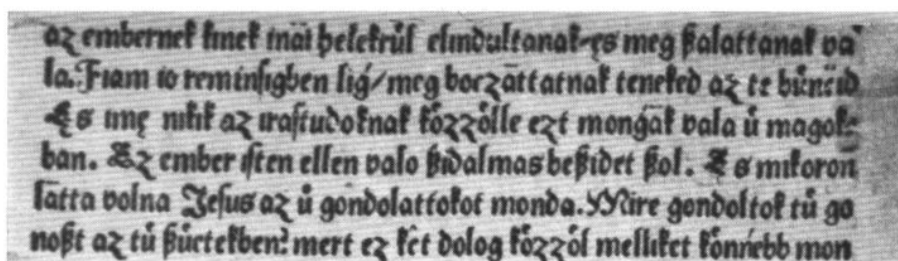 az embernek kinek inai helekrűl elindultanak, ęs meg ßalattanak va
la. Fiam io reminsigben lig/ meg boczāttatnak teneked az te bűneid
Ęs imę nikik az irastudoknak kőzzőlle ezt mongāk vala ű magok
ban. Ez ember isten ellen valo ßidalmas beßidet ßol. Ęs mikoron
lātta volna Jesus az ű gondolattokot monda. Mire gondoltok tű go
noßt az tű ßűetekben? mert ez kęt dolog kőzzől melliket kőnńebb mon